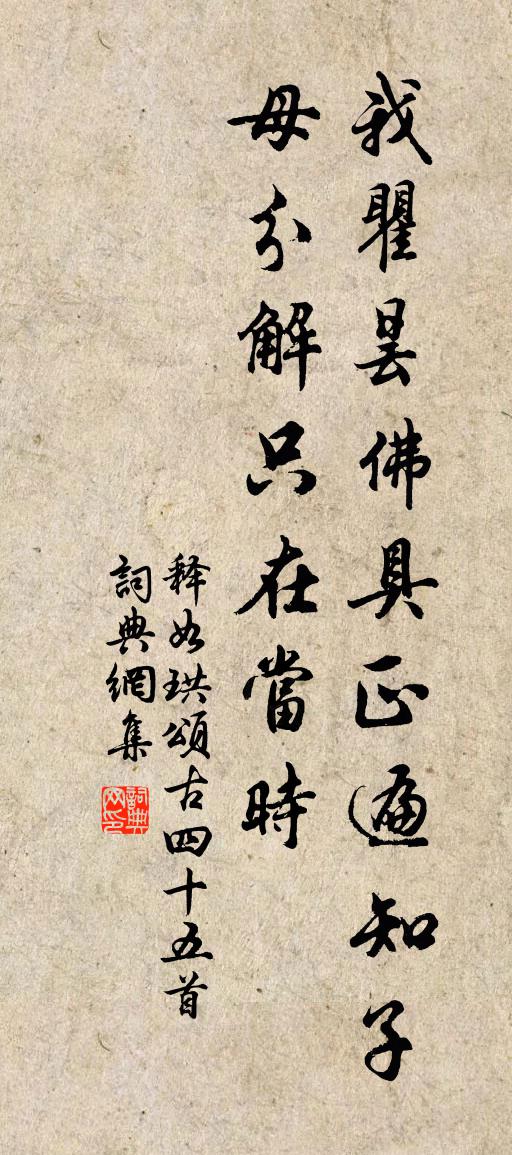 我瞿昙佛具正遍知子
母分解只在當時
释如珙頌古四十五首
詞典網集
詞典网印